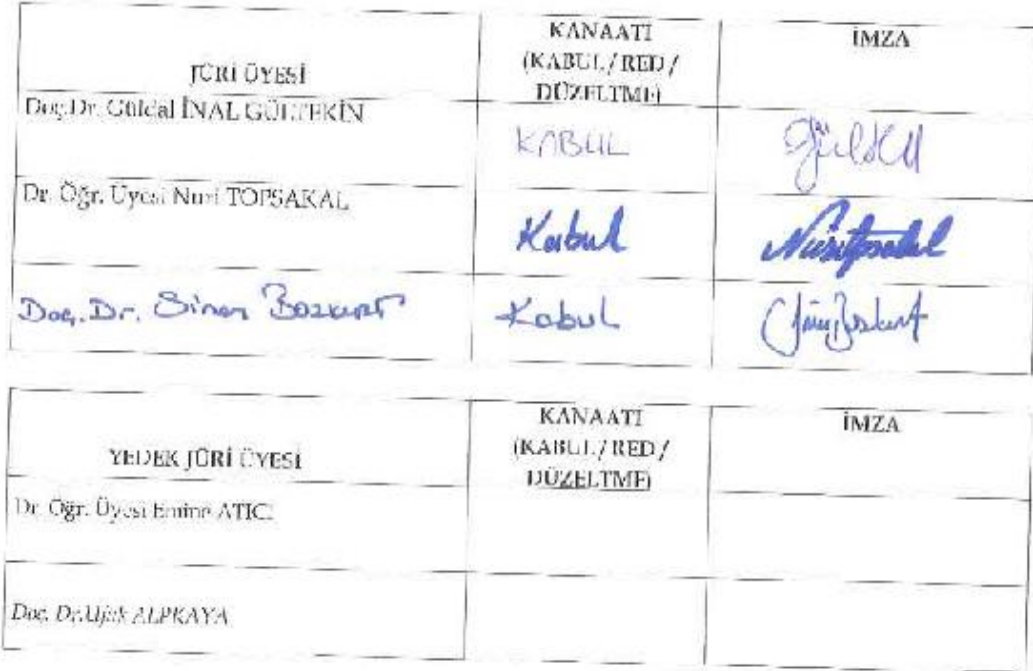 JÜRİ ÜYESİ
KANAATI
(KABUL / RED /
DÜZELTME)
İMZA
Doç.Dr. Güldal İNAL GÜLTEKİN
KABUL
Dr. Öğr. Üyesi Nuri TOPSAKAL
Kabul
Doç. Dr. Sinan Bozkurt
Kabul
YEDEK JÜRİ ÜYESİ
KANAATI
(KABUL / RED /
DÜZELTME)
İMZA
Dr. Öğr. Üyesi Emine ATICI
Doç. Dr.Ufuk ALPKAYA